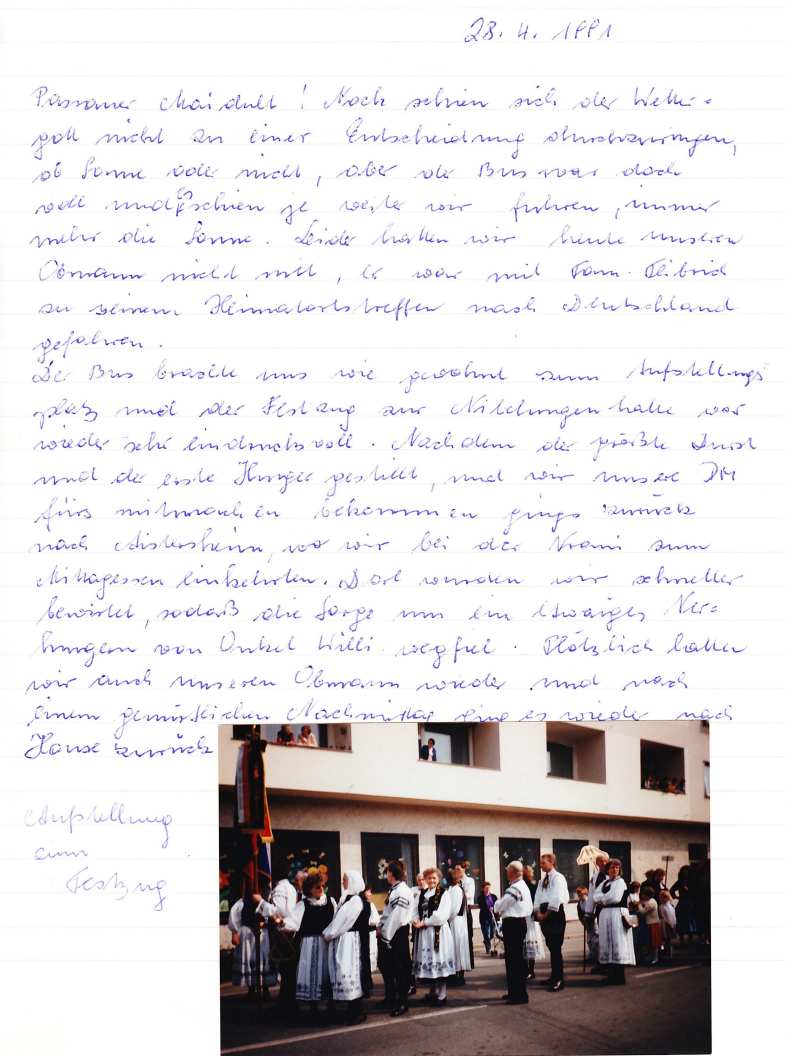 28. 4. 1991
Passauer Maidult! Noch schien sich der Wetter=
gott nicht zu einer Entscheidung durchzuringen,
ob Sonne oder nicht, aber der Bus war doch
voll und es schien je weiter wir fuhren, immer
mehr die Sonne. Leider hatten wir heute unseren
Obmann nicht mit, Er war mit Fam.
zu seinem Heimatortstreffen nach Deutschland
gefahren.
Der Bus brachte uns wie gewohnt zum Aufstellungs
platz und der Festzug zur Nibelungenhalle war
wieder sehr eindrucksvoll. Nachdem der größte Durst
und der erste Hunger gestillt, und wir unsere DM
fürs mitmachen bekommen gings zurück
nach Aistersheim, wo wir bei der zum
Mittagessen einkehrten. Dort wurden wir schneller
bewirtet, sodaß die Sorge um ein etwaiges Ver=
hungern von Onkel Willi wegfiel. Plötzlich hatten
wir auch unseren Obmann wieder und nach
einem gemütlichen Nachmittag ging es wieder nach
Hause zurück
Aufstellung
zum
Festzug